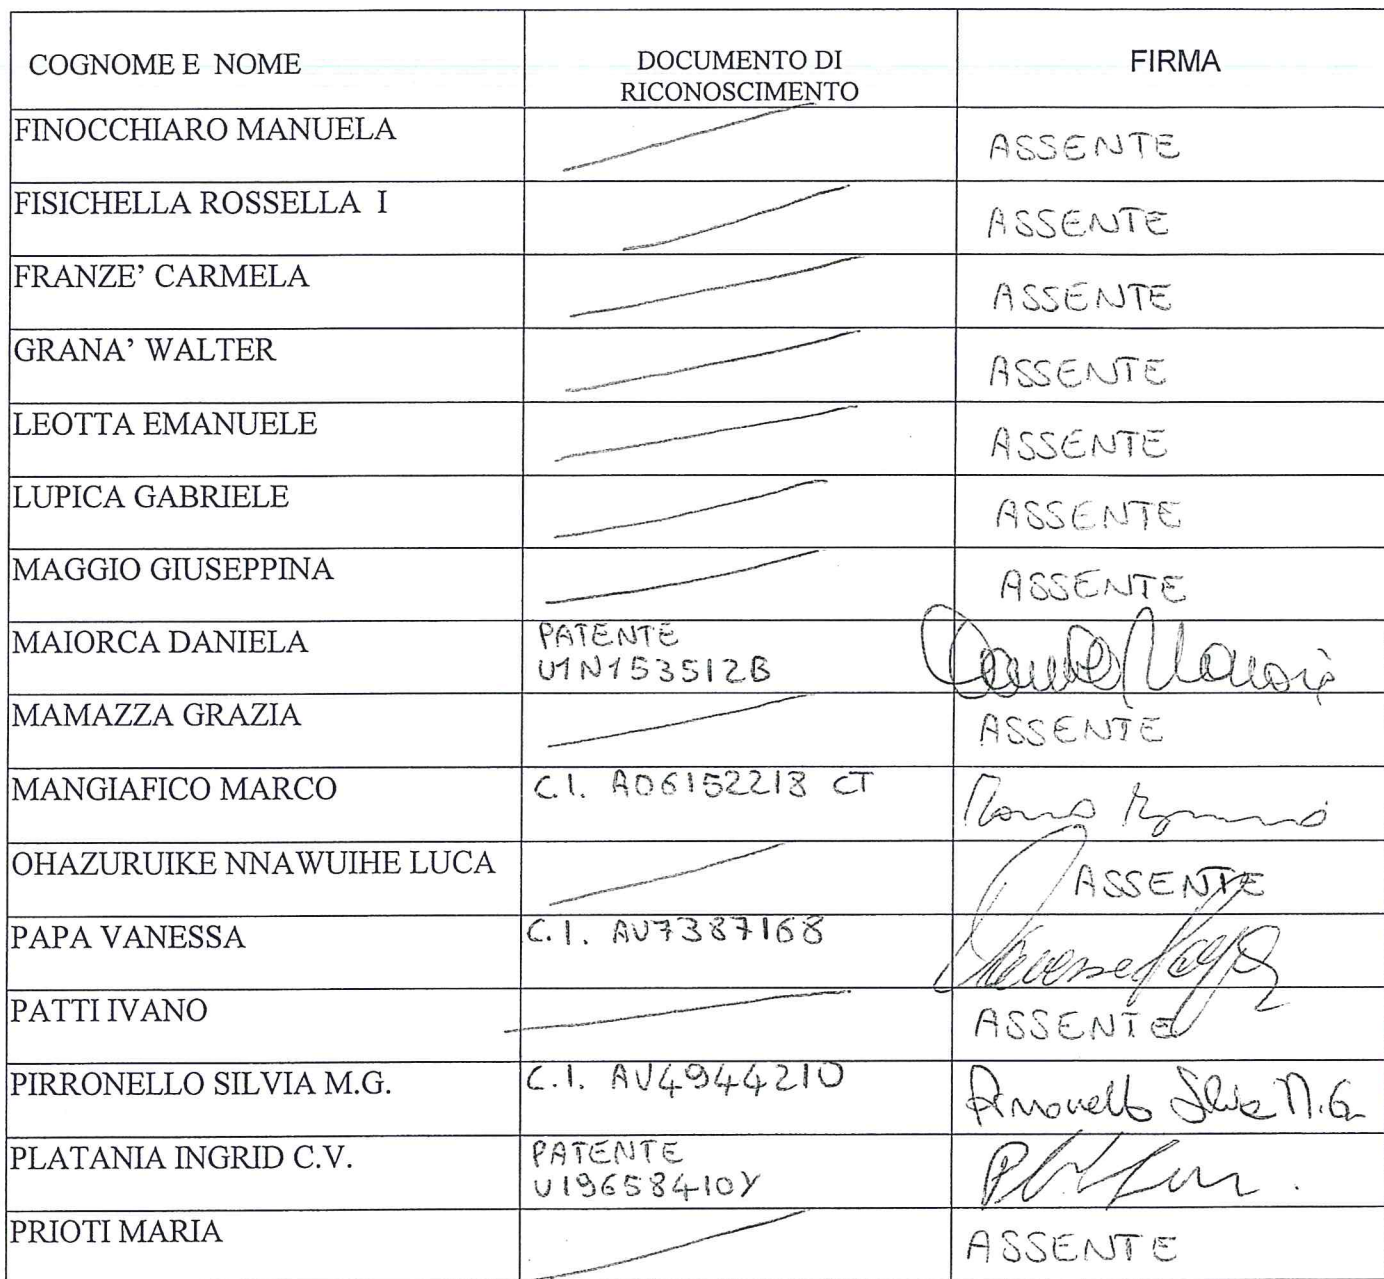 COGNOME E NOME
DOCUMENTO DI
RICONOSCIMENTO
FIRMA
FINOCCHIARO MANUELA ASSENTE
FISICHELLA ROSSELLA I ASSENTE
FRANZE’ CARMELA ASSENTE
GRANA’ WALTER ASSENTE
LEOTTA EMANUELE ASSENTE
LUPICA GABRIELE ASSENTE
MAGGIO GIUSEPPINA ASSENTE
MAIORCA DANIELA PATENTE
U1N153512B
MAMAZZA GRAZIA ASSENTE
MANGIAFICO MARCO C.I. AO6152218 CT
OHAZURUIKE NNAWUIHE LUCA ASSENTE
PAPA VANESSA C.I. AV7387168
PATTI IVANO ASSENTE
PIRRONELLO SILVIA M.G. C.I. AV4944210 Pirronello Silvia M.G.
PLATANIA INGRID C.V. PATENTE
U19658410Y
PRIOTI MARIA ASSENTE